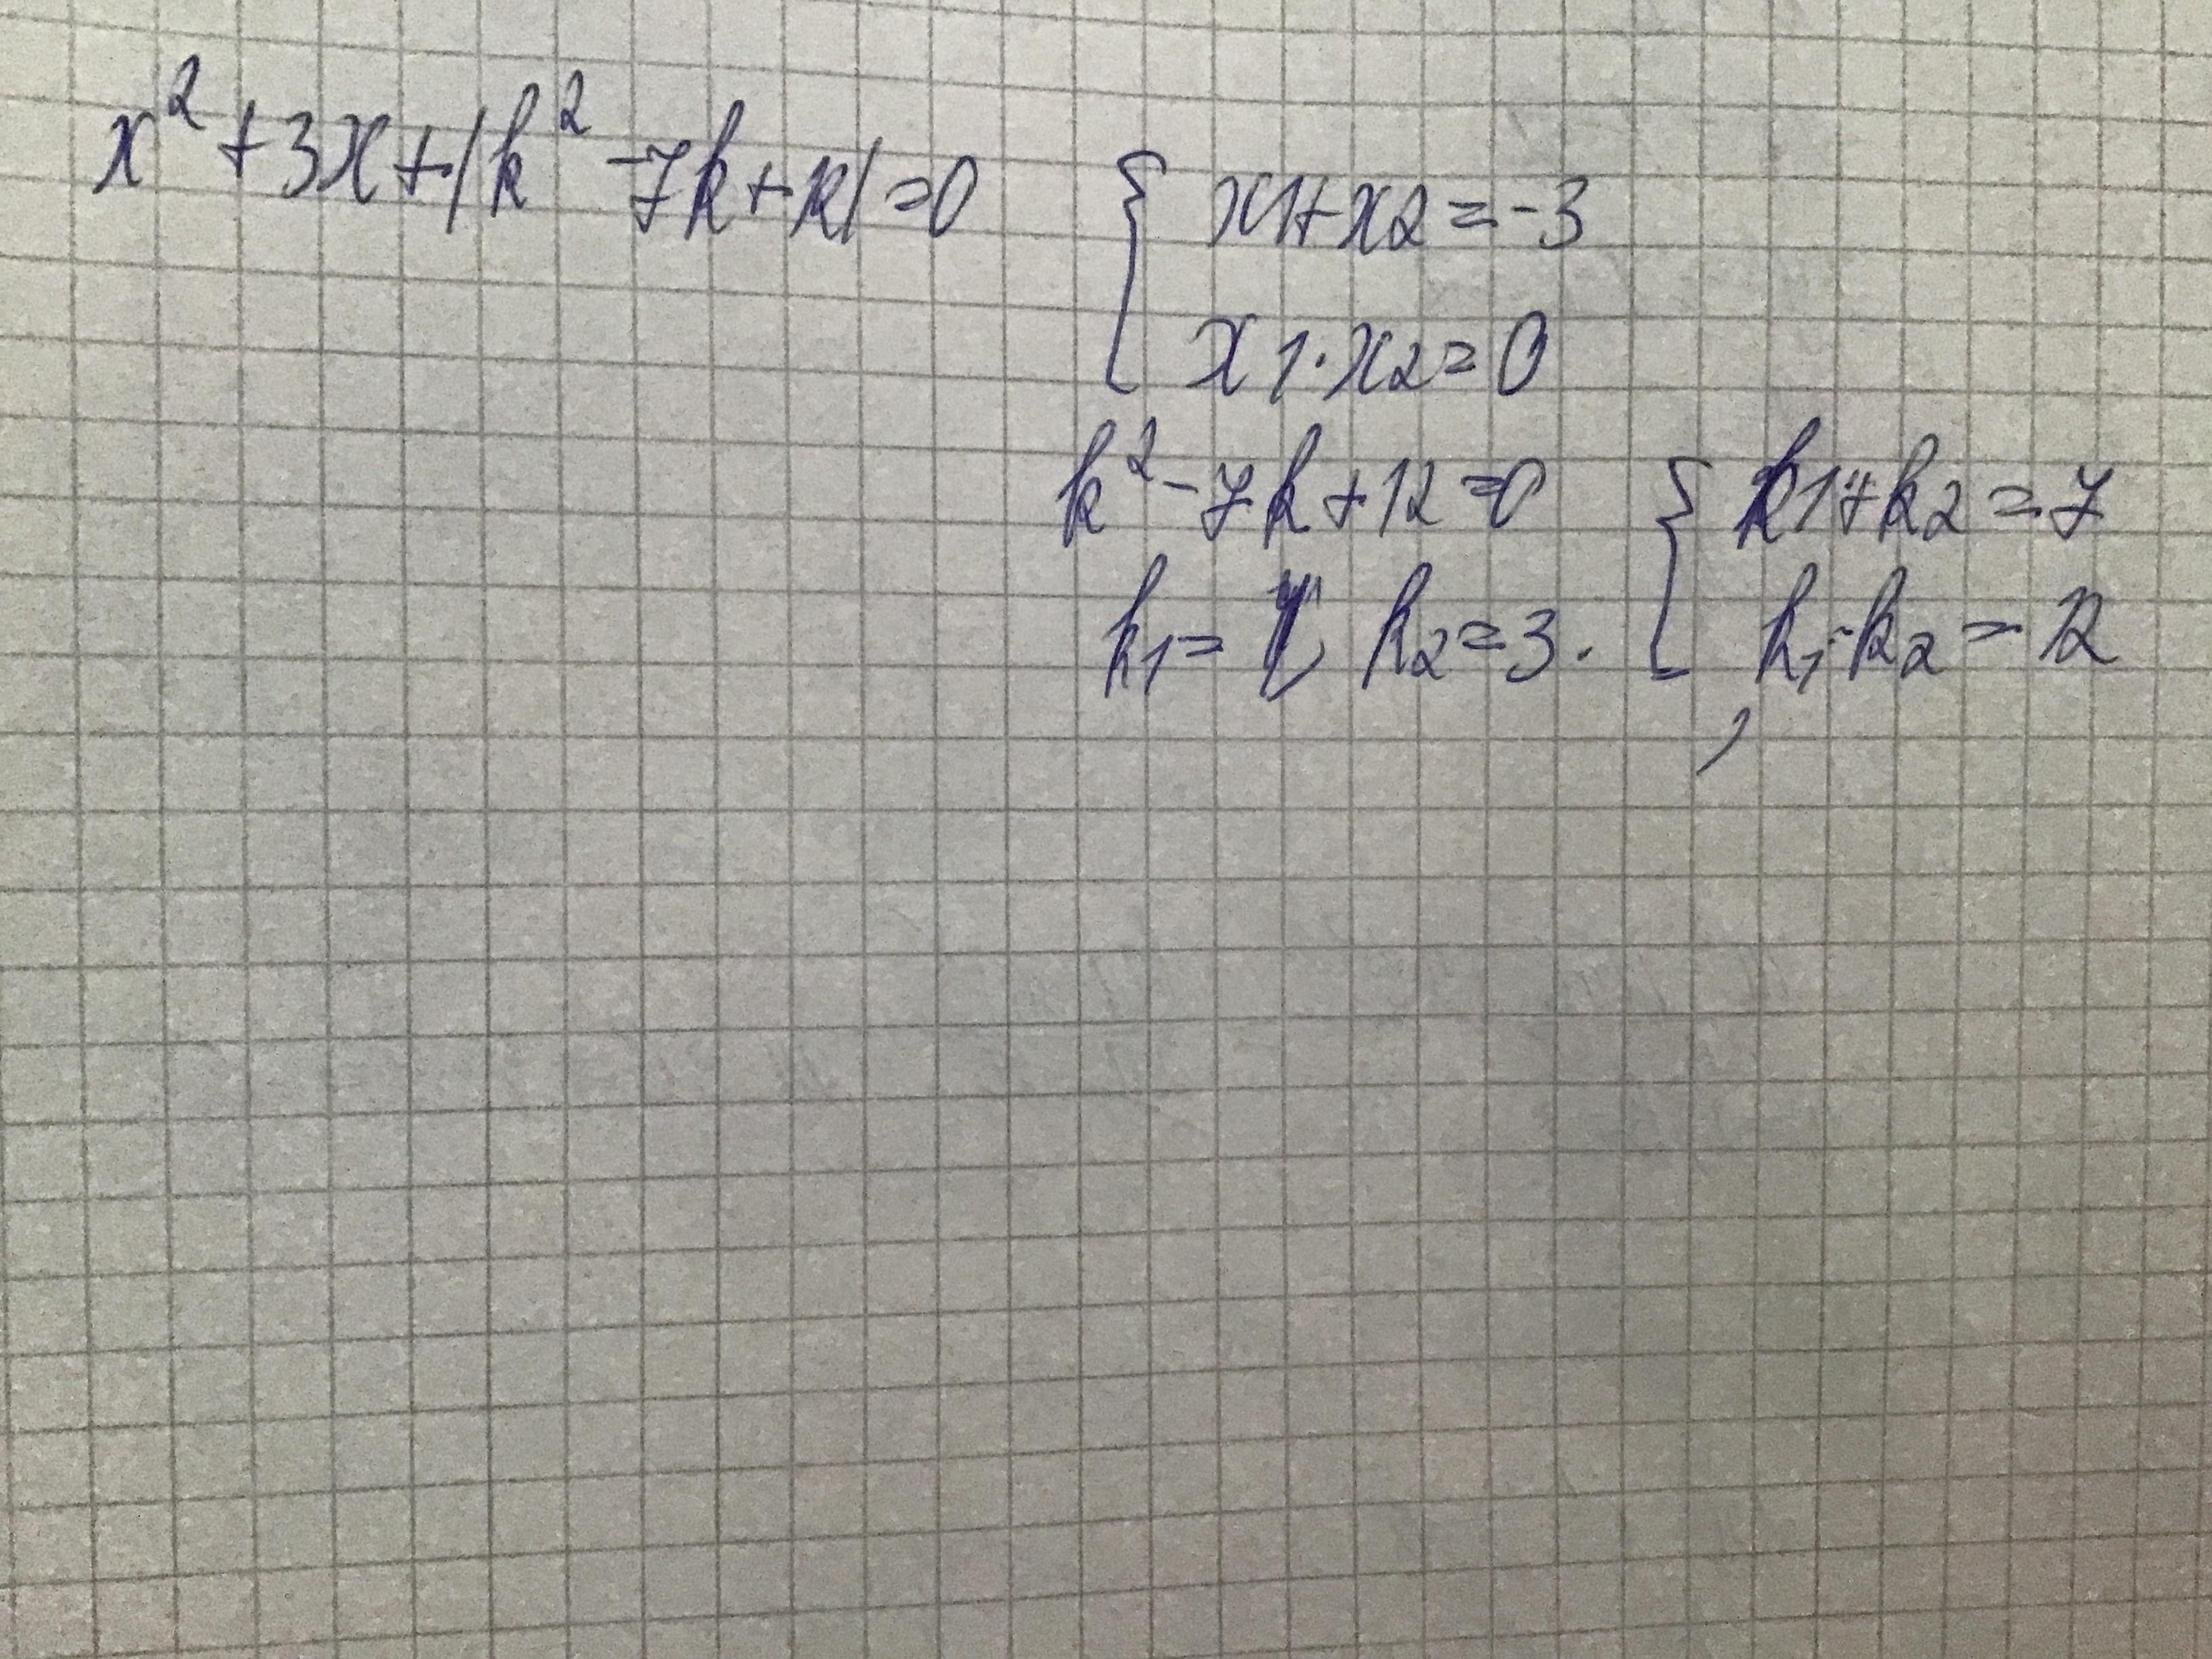 x² + 3x + |k² - 7k + 12| = 0
{ x1 + x2 = -3
x1 · x2 = 0
k² - 7k + 12 = 0 { k1 + k2 = 7
k1 = 4, k2 = 3. k1 · k2 = 12